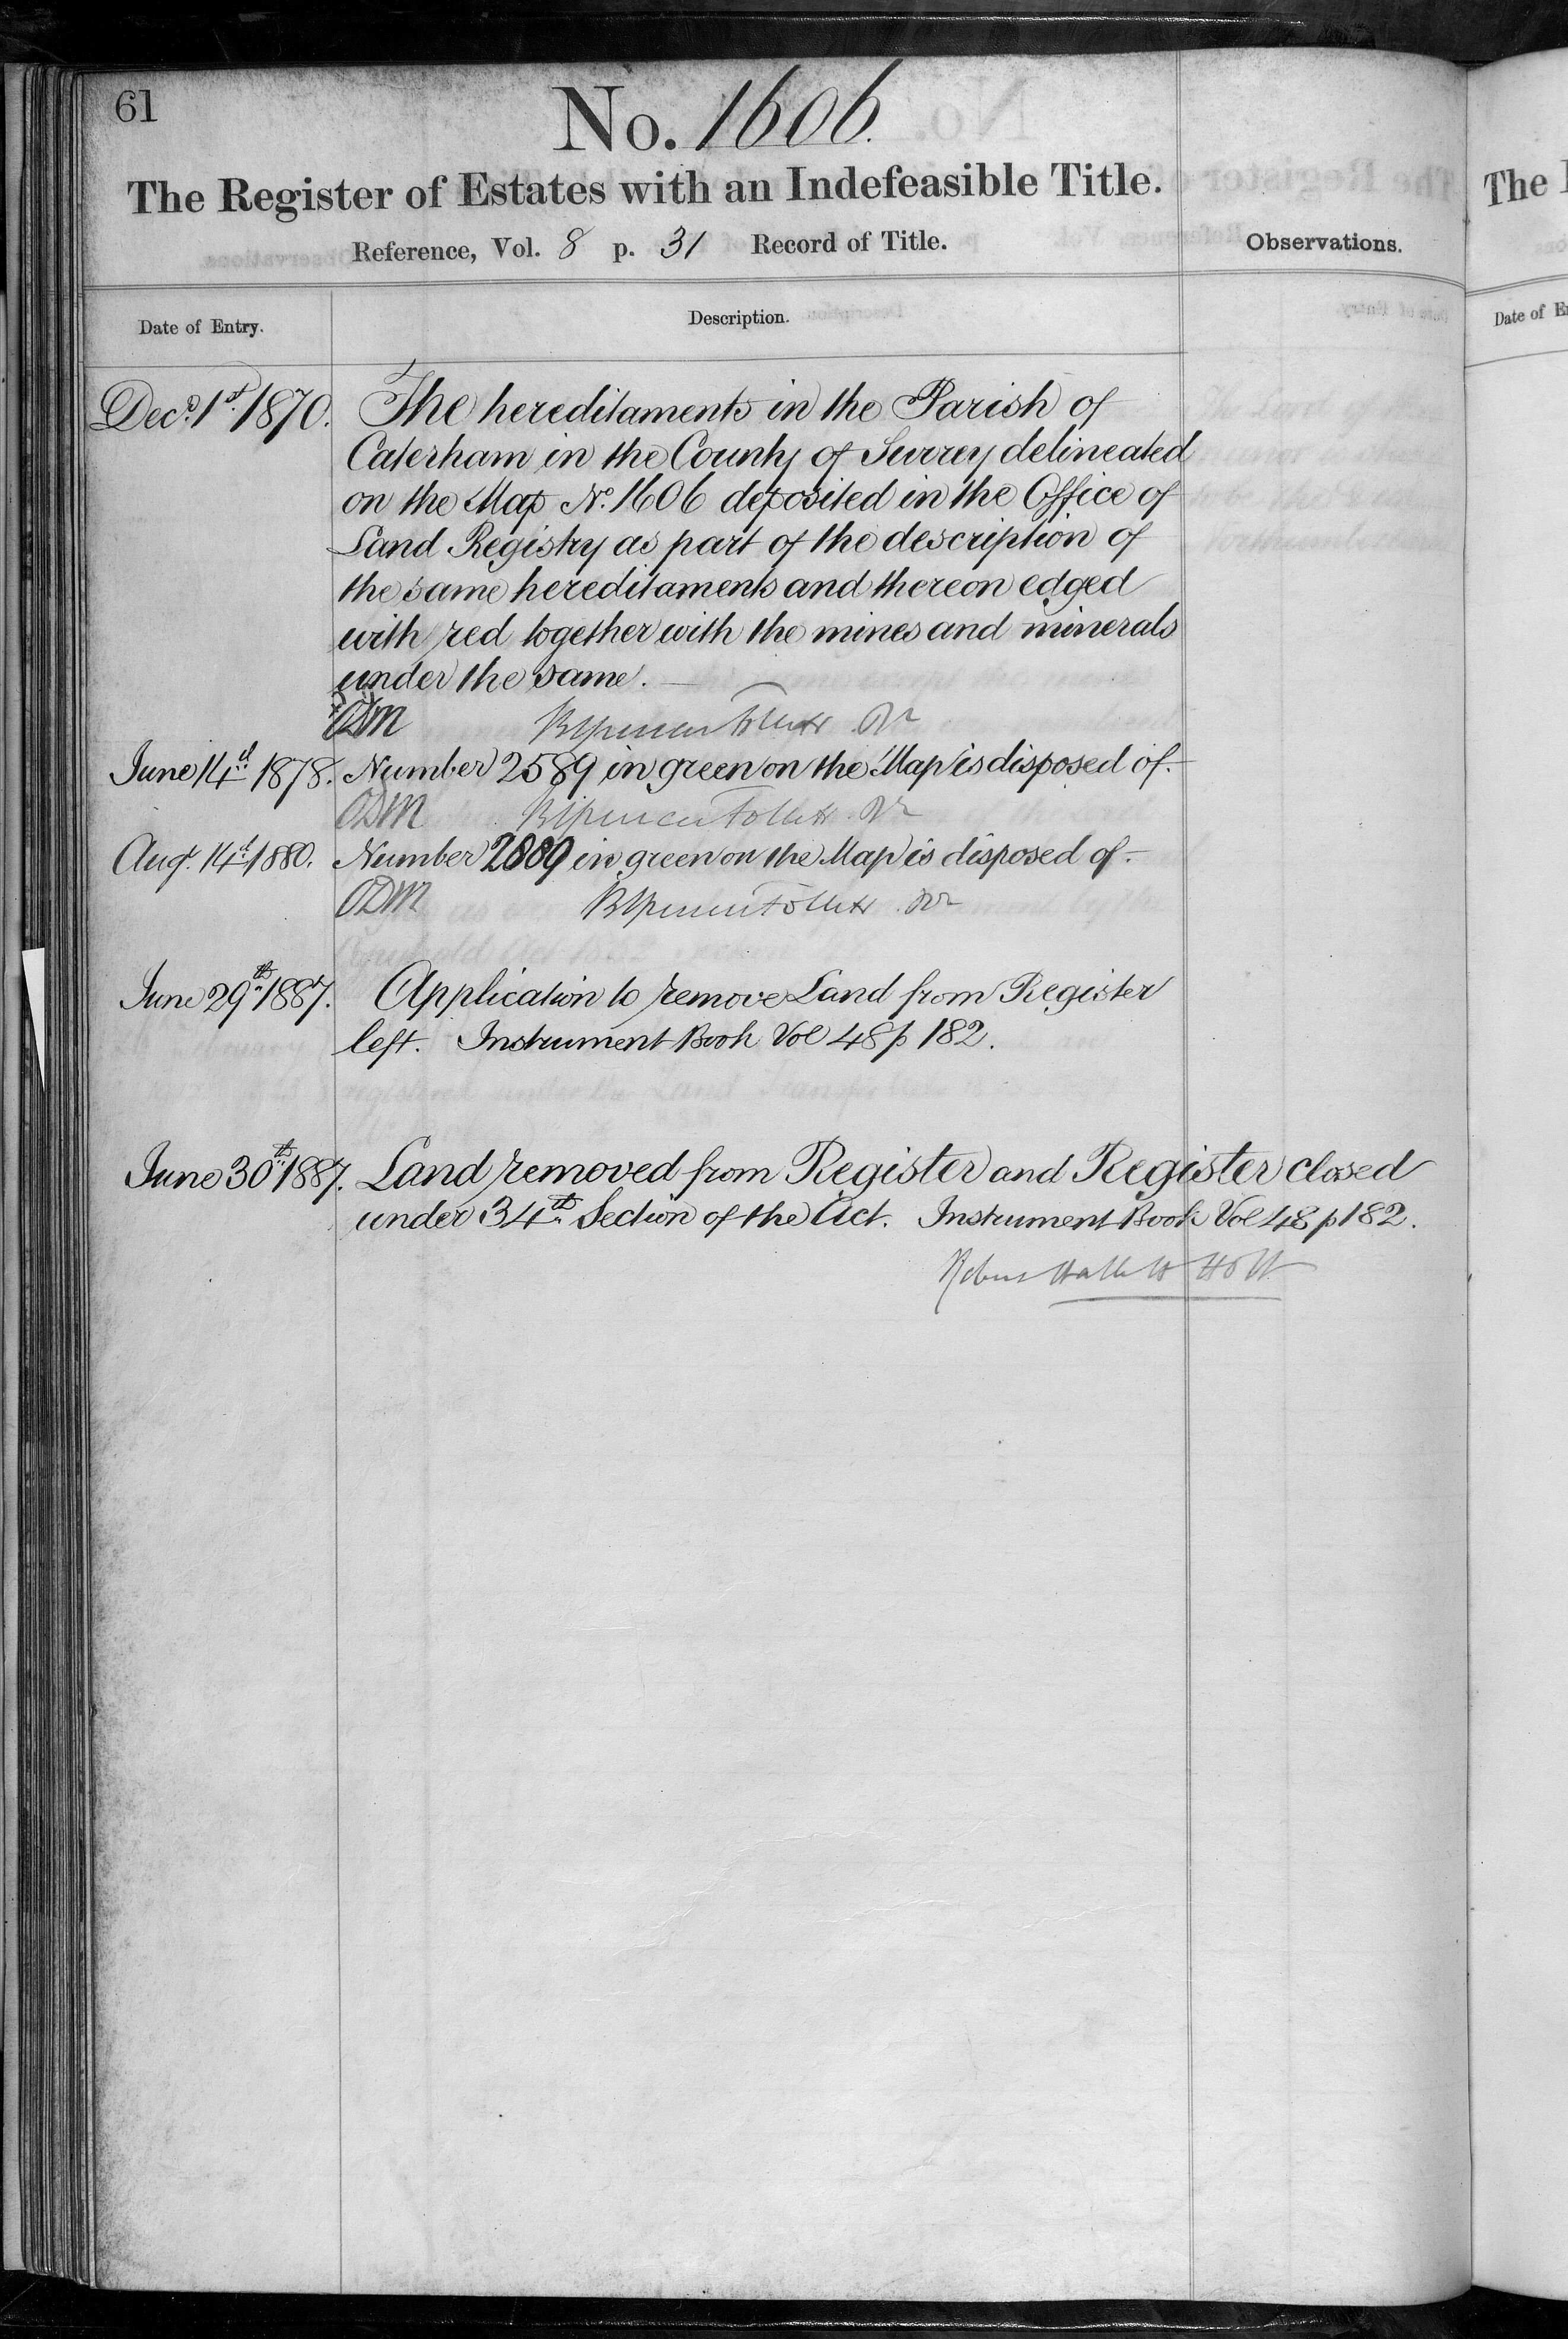 61
No. 1606.
The Register of Estates with an Indefeasible Title.
Reference, Vol. 8 p. 31 Record of Title.
Observations.
Date of Entry.
Description.
Decr. 1st. 1870. The hereditaments in the Parish of
Caterham in the County of Surrey delineated
on the Map No. 1606 deposited in the Office of
Land Registry as part of the description of
the same hereditaments and thereon edged
with red together with the mines and minerals
under the same.
ODM
June 14th 1878. Number 2589 in green on the Map is disposed of.
ODM
Augt. 14th 1880. Number 2809 in green on the Map is disposed of.
ODM
June 29th 1887. Application to remove Land from Register
left. Instrument Book Vol 48 p 182.
June 30th 1887. Land removed from Register and Register closed
under 34th Section of the Act. Instrument Book Vol 48 p 182.
Robert Hallett Holt
The
Date of